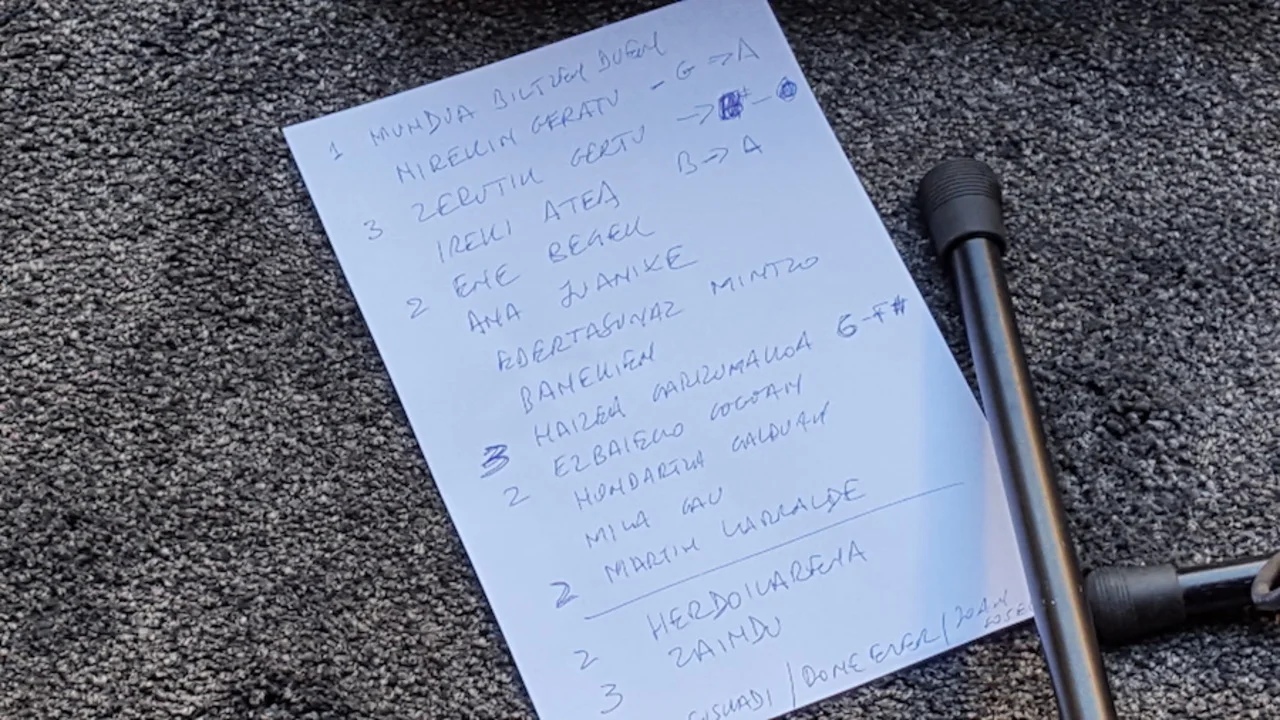 1 MUNDUA BILTZEN DUEN
NIREKIN GERATU - G → A
3 ZERUTIK GERTU →
IREKI ATEA B → A
2 ENE BEGEK
ANA JUANIXE
EDERTASUNAZ MINTZO
BANEKIEN
3 HAIZEA GARIZUMAKOA G-F#
2 EZBAIEKO GOGOAN
HONDARTZA GALDUAN
MILA GAU
2 MARTIN LARRALDE
2 HERDOILARENA
3 ZAINDU
/ DONE EVER / JOAN JOSE